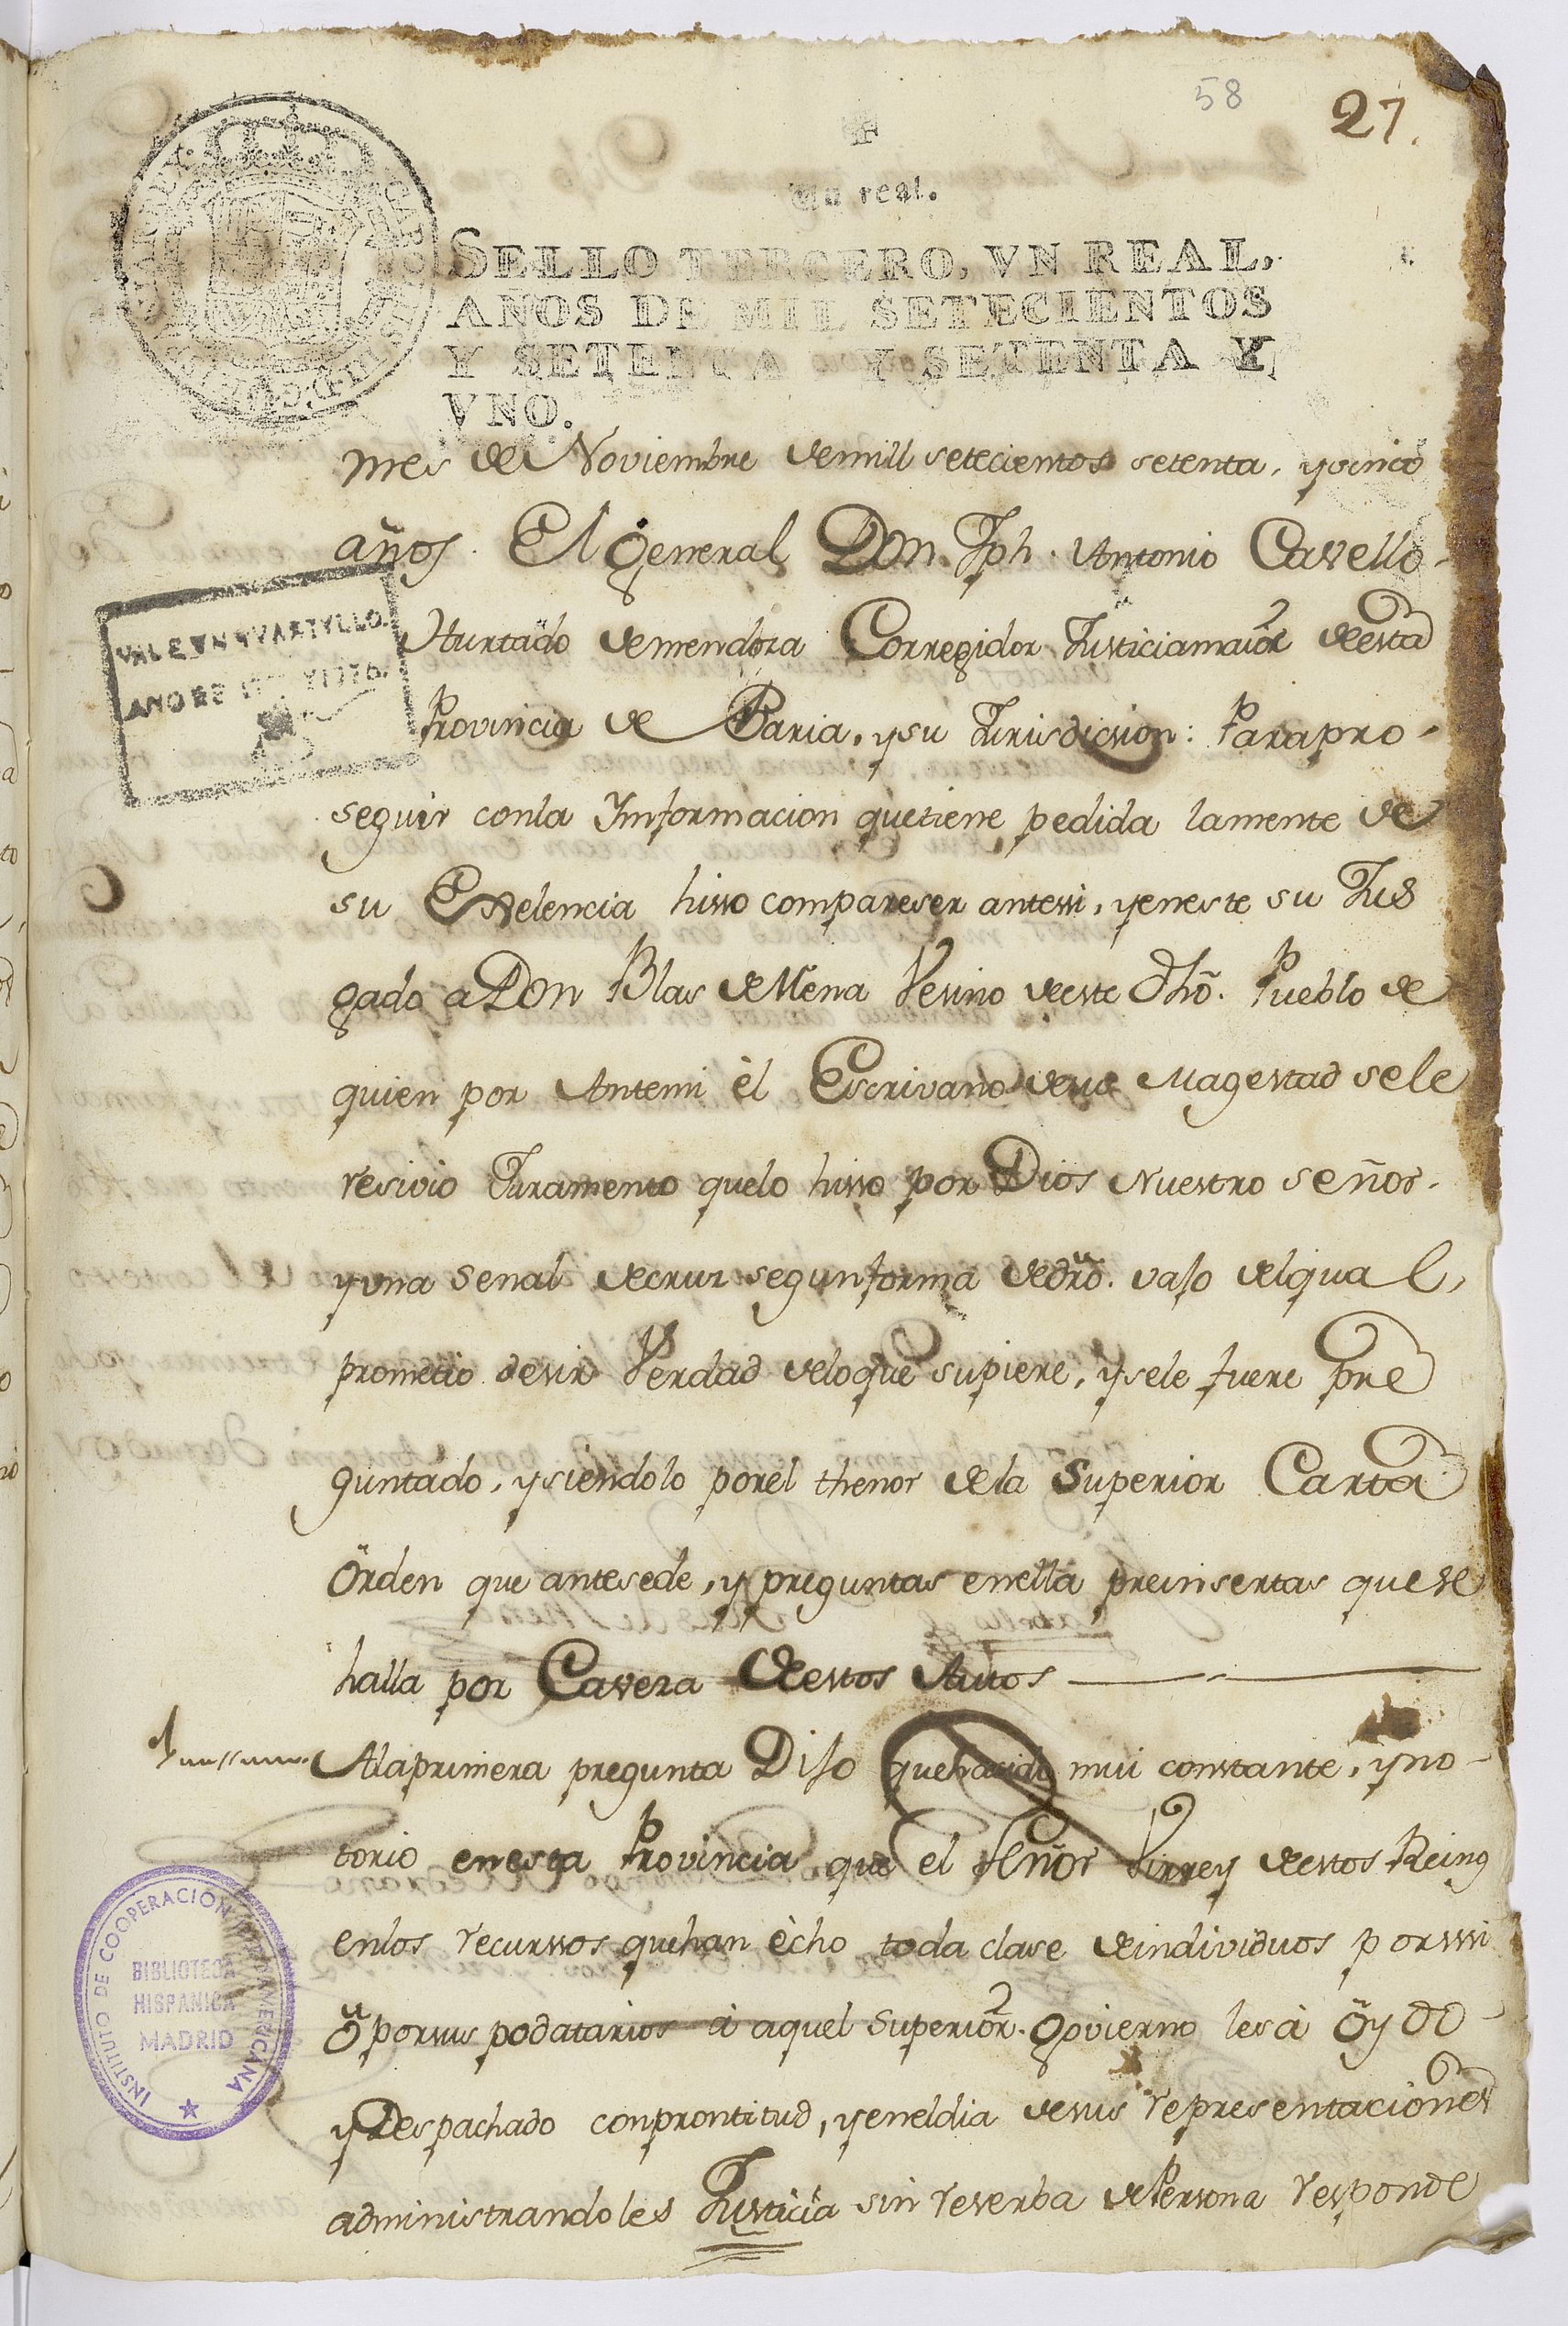 58
27.
Un real.
SELLO TERCERO, VN REAL,
AÑOS DE MIL SETECIENTOS
Y SETENTA Y SETENTA Y
VNO.
mes de Noviembre demill setecientos setenta, ysinco
años. El General Don Jph. Antonio Cavello
VALE VN QVARTYLLO.
Hurtado demendoza Corregidor Justiciamaior deesta
Provincia de Paria, ysu Jurisdiccion: Parapro-
seguir conla Ynformacion quetiene pedida lamente de
su Exelencia hisso compareser antessi, yeneste su Jus
gado a Don Blas de Mena Vesino deeste dho. Pueblo de
quien por Antemi èl Escrivano desu Magestad sele
resivio Juramento quelo hisso por Dios Nuestro señor.
yuna señal decruz segunforma dedro. vajo delqual,
prometio desir Verdad deloque supiere, ysele fuere pre
guntado, ysiendolo porel thenor dela Superior Carta
Orden que antesede, y preguntas enella preinsertas quese
halla por Cavesa destos Autos
Alaprimera pregunta Dijo quehasido mui constante, yno-
torio enesta Provincia que el señor Virrey destos Reinos
enlos recurssos quehan ècho toda clase deindividuos porssi
ò porsus podatarios à aquel Superior Govierno lesà Oydo
yDespachado conprontitud, yeneldia desus representaciones
administrandoles Justicia sin reserba dePersona responde
INSTITUTO DE COOPERACIÓN IBEROAMERICANA
BIBLIOTECA
HISPANICA
MADRID